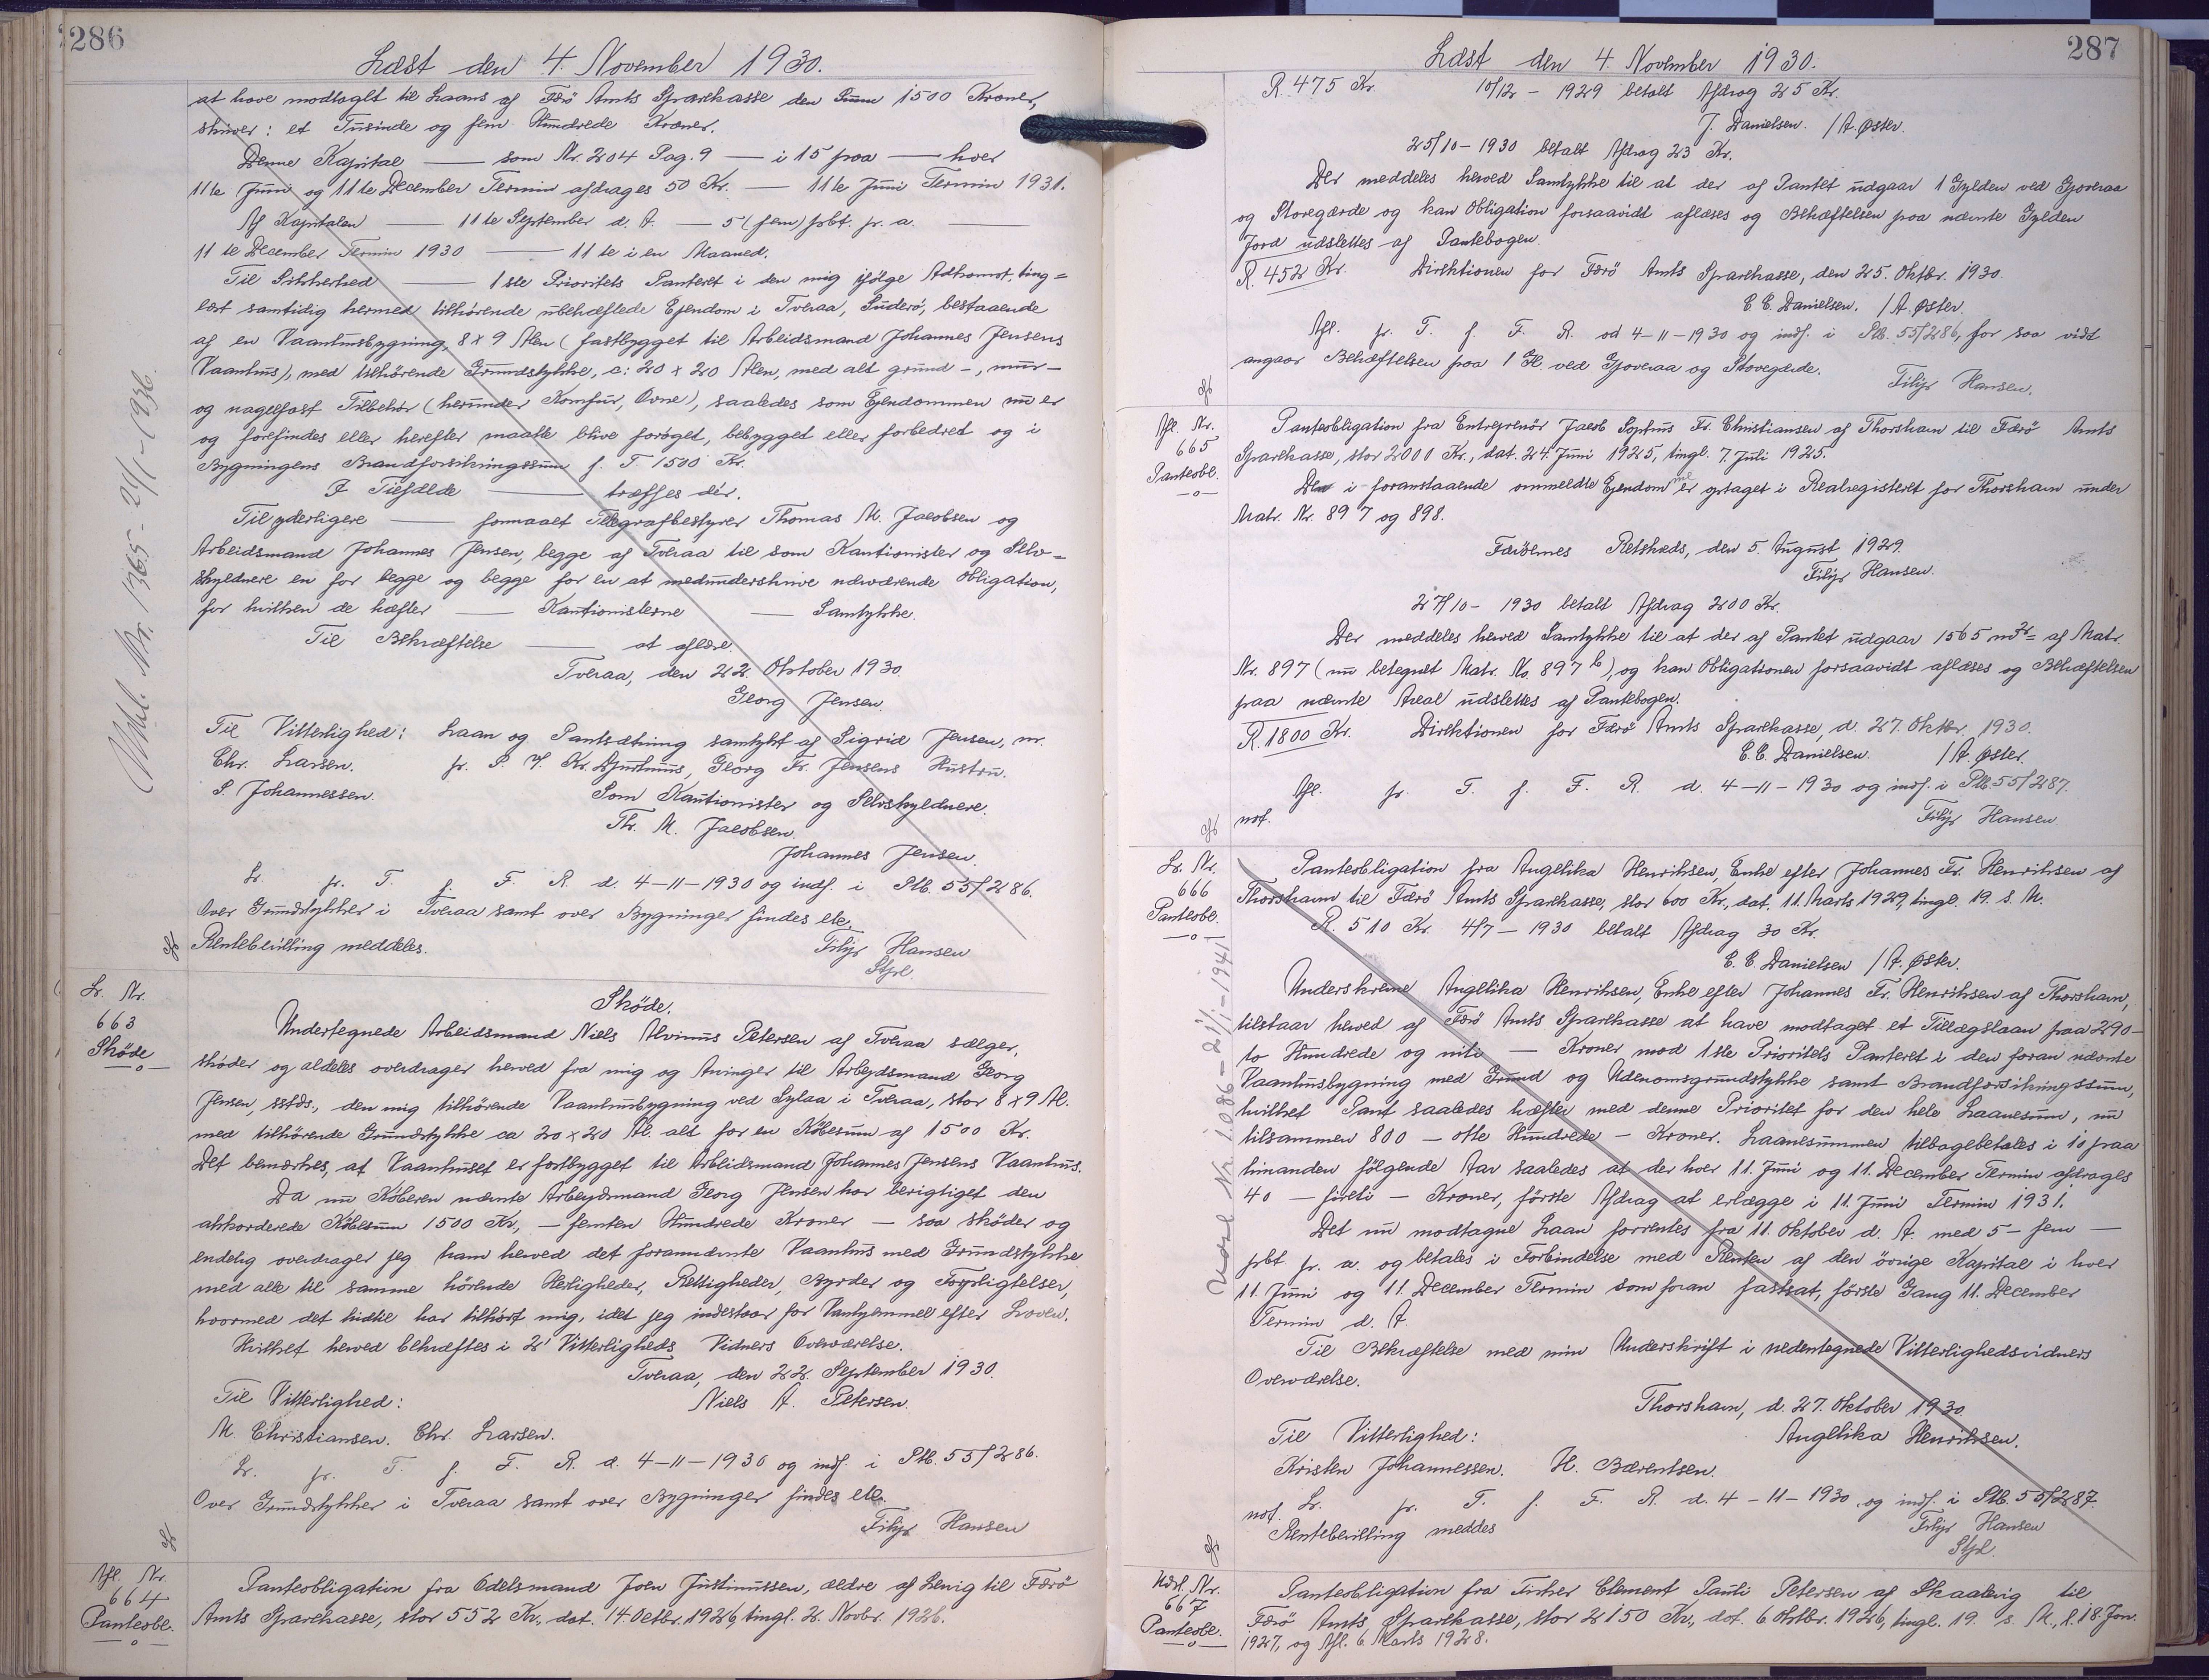 286
Læst den 4. November 1930.
at have modtaget til Laans af Færø Amts Sparekasse den Sum 1500 Kroner,
skriver: et Tusinde og fem Hundrede Kroner.
Denne Kapital — som Nr. 204 Pag. 9 — i 15 paa — hver
11te Juni og 11te December Termin afdrages 50 Kr. — 11te Juni Termin 1931.
Af Kapitalen — 11te September d. A. — 5 (fem) pCt. pr. a. —
11te December Termin 1930 — 11te i en Maaned.
Til Sikkerhed — 1ste Prioritets Panteret i den mig ifølge Adkomst, ting=
læst samtidig hermed tilhørende ubehæftede Ejendom i Tveraa, Suderø, bestaaende
af en Vaanhusbygning, 8 x 9 Alen (fastbygget til Arbeidsmand Johannes Jensens
Vaanhus), med tilhørende Grundstykke, c: 20 x 20 Alen, med alt grund-, mur-
og nagelfast Tilbehør (herunder Komfur, Ovne), saaledes som Ejendommen nu er
og forefindes eller herefter maatte blive forøget, bebygget eller forbedret og i
Bygningens Brandforsikringssum f. T. 1500 Kr.
I Tilfælde — træffes dér.
Til yderligere — formaaet Telegrafbestyrer Thomas M. Jacobsen og
Arbeidsmand Johannes Jensen, begge af Tveraa til som Kautionister og Selv=
skyldnere en for begge og begge for en at medunderskrive nærværende Obligation,
for hvilken de hæfter — Kautionisterne — Samtykke.
Til Bekræftelse — at aflæse.
Tveraa, den 22. Oktober 1930.
Georg Jensen.
Til Vitterlighed: Laan og Pantsætning samtykt af Sigrid Jensen,
Chr. Larsen. Georg Fr. Jensens Hustru.
S. Johannessen. Som Kautionister og Selvskyldnere.
Th. M. Jacobsen.
Johannes Jensen.
Lr. pr. T. f. F. R. d. 4-11-1930 og indf. i Ptb. 55/286.
Over Grundstykker i Tveraa samt over Bygninger findes etc.
Rentebevilling meddeles. Filip Hansen
Stpl.
Afl. Nr. 1365 - 24/1-1936.
Lr. Nr.
663
Skøde
Skøde.
Undertegnede Arbeidsmand Niels Alvinus Petersen af Tveraa sælger,
skøder og aldeles overdrager herved fra mig og Arvinger til Arbejdsmand Georg
Jensen, sstds., den mig tilhørende Vaanhusbygning ved Sylaa i Tveraa, stor 8 x 9 Al.
med tilhørende Grundstykke ca 20 x 20 Al. alt for en Købesum af 1500 Kr.
Det bemærkes, at Vaanhuset er fastbygget til Arbeidsmand Johannes Jensens Vaanhus.
Da nu Køberen nævnte Arbejdsmand Georg Jensen har berigtiget den
akkorderede Købesum 1500 Kr., — femten Hundrede Kroner — saa skøder og
endelig overdrager jeg ham herved det forannævnte Vaanhus med Grundstykke
med alle til samme hørende Herligheder, Rettigheder, Byrder og Forpligtelser,
hvormed det hidtil har tilhørt mig, idet jeg indestaar for Vanhjemmel efter Loven.
Hvilket herved bekræftes i 2 Vitterligheds Vidners Overværelse.
Tveraa, den 22. September 1930.
Til Vitterlighed: Niels A. Petersen.
M. Christiansen. Chr. Larsen.
Lr. pr. T. f. F. R. d. 4-11-1930 og indf. i Ptb. 55/286.
Over Grundstykker i Tveraa samt over Bygninger findes etc.
Filip Hansen
Afl. Nr.
664
Panteobl.
Panteobligation fra Odelsmand Joen Justinussen, ældre af Lervig til Færø
Amts Sparekasse, stor 552 Kr., dat. 14. Octbr. 1926, tingl. 2. Novbr. 1926.
287
Læst den 4. November 1930.
R. 475 Kr. 10/12 - 1929 betalt Afdrag 25 Kr.
J. Danielsen. / A. Øster.
25/10-1930 betalt Afdrag 23 Kr.
Der meddeles herved Samtykke til at der af Pantet udgaar 1 Gylden ved Gjoveraa
og Storegærde og kan Obligation forsaavidt aflæses og Behæftelsen paa nævnte Gylden
Jord udslettes af Pantebogen.
R. 452 Kr. Direktionen for Færø Amts Sparekasse, den 25. Oktbr. 1930.
C. C. Danielsen. / A. Øster.
Afl. pr. T. f. F. R. d 4-11-1930 og indf. i Ptb. 55/286, for saa vidt
angaar Behæftelsen paa 1 Gl. ved Gjoveraa og Storegærde.
Filip Hansen.
Afl. Nr.
665
Panteobl.
Panteobligation fra Entreprenør Jacob Fr. Christiansen af Thorshavn til Færø Amts
Sparekasse, stor 2000 Kr., dat. 24. Juni 1925, tingl. 7. Juli 1925.
De i foranstaaende ommeldte Ejendomme er optaget i Realregisteret for Thorshavn under
Matr. Nr. 897 og 898.
Færøernes Retskreds, den 5. August 1929.
Filip Hansen.
27/10 - 1930 betalt Afdrag 200 Kr.
Der meddeles herved Samtykke til at der af Pantet udgaar 1565 m2= af Matr.
Nr. 897 (nu betegnet Matr. No. 897 b), og kan Obligationen forsaavidt aflæses og Behæftelsen
paa nævnte Areal udslettes af Pantebogen.
R. 1800 Kr. Direktionen for Færø Amts Sparekasse, d. 27. Oktbr. 1930.
C. C. Danielsen. / A. Øster.
Afl. pr. T. f. F. R. d. 4-11-1930 og indf. i Ptb. 55/287.
not. Filip Hansen
Lr. Nr.
666
Panteobl.
Panteobligation fra Angelika Henriksen, Enke efter Johannes Fr. Henriksen af
Thorshavn til Færø Amts Sparekasse, stor 600 Kr., dat. 11. Marts 1929, tingl. 19. s. M.
R. 510 Kr. 4/7 - 1930 betalt Afdrag 30 Kr.
C. C. Danielsen / A. Øster.
Underskrevne Angelika Henriksen, Enke efter Johannes Fr. Henriksen af Thorshavn,
tilstaar herved af Færø Amts Sparekasse at have modtaget et Tillægslaan paa 290 -
to Hundrede og niti — Kroner mod 1ste Prioritets Panteret i den foran nævnte
Vaanhusbygning med Grund og Udenomsgrundstykke samt Brandforsikringssum,
hvilket Pant saaledes hæfter med denne Prioritet for den hele Laanesum, nu
tilsammen 800 — otte Hundrede — Kroner. Laanesummen tilbagebetales i 10 paa
hinanden følgende Aar saaledes at der hver 11. Juni og 11. December Termin afdrages
40 — fireti — Kroner, første Afdrag at erlægge i 11. Juni Termin 1931.
Det nu modtagne Laan forrentes fra 11. Oktober d. A. med 5 - fem —
pCt. pr. a. og betales i Forbindelse med Renten af den øvrige Kapital i hver
11. Juni og 11. December Termin som foran fastsat, første Gang 11. December
Termin d. A.
Til Bekræftelse med min Underskrift i nedentegnede Vitterlighedsvidners
Overværelse.
Thorshavn, d. 27. Oktober 1930.
Til Vitterlighed: Angelika Henriksen.
Kristen Johannessen. H. Bærentsen.
not. Lr. pr. T. f. F. R. d. 4-11-1930, og indf. i Ptb. 55/287.
Rentebevilling meddes Filip Hansen
Stpl.
Udsl. Nr. 1086 - 21/1-1941
Udsl. Nr.
667
Panteobl.
Panteobligation fra Fisker Clement Pauli Petersen af Skaalevig til
Færø Amts Sparekasse, stor 2150 Kr., dat. 6 Oktbr. 1926, tingl. 19. s. M., 18. Jan.
1927, og Afl. 6 Marts 1928.